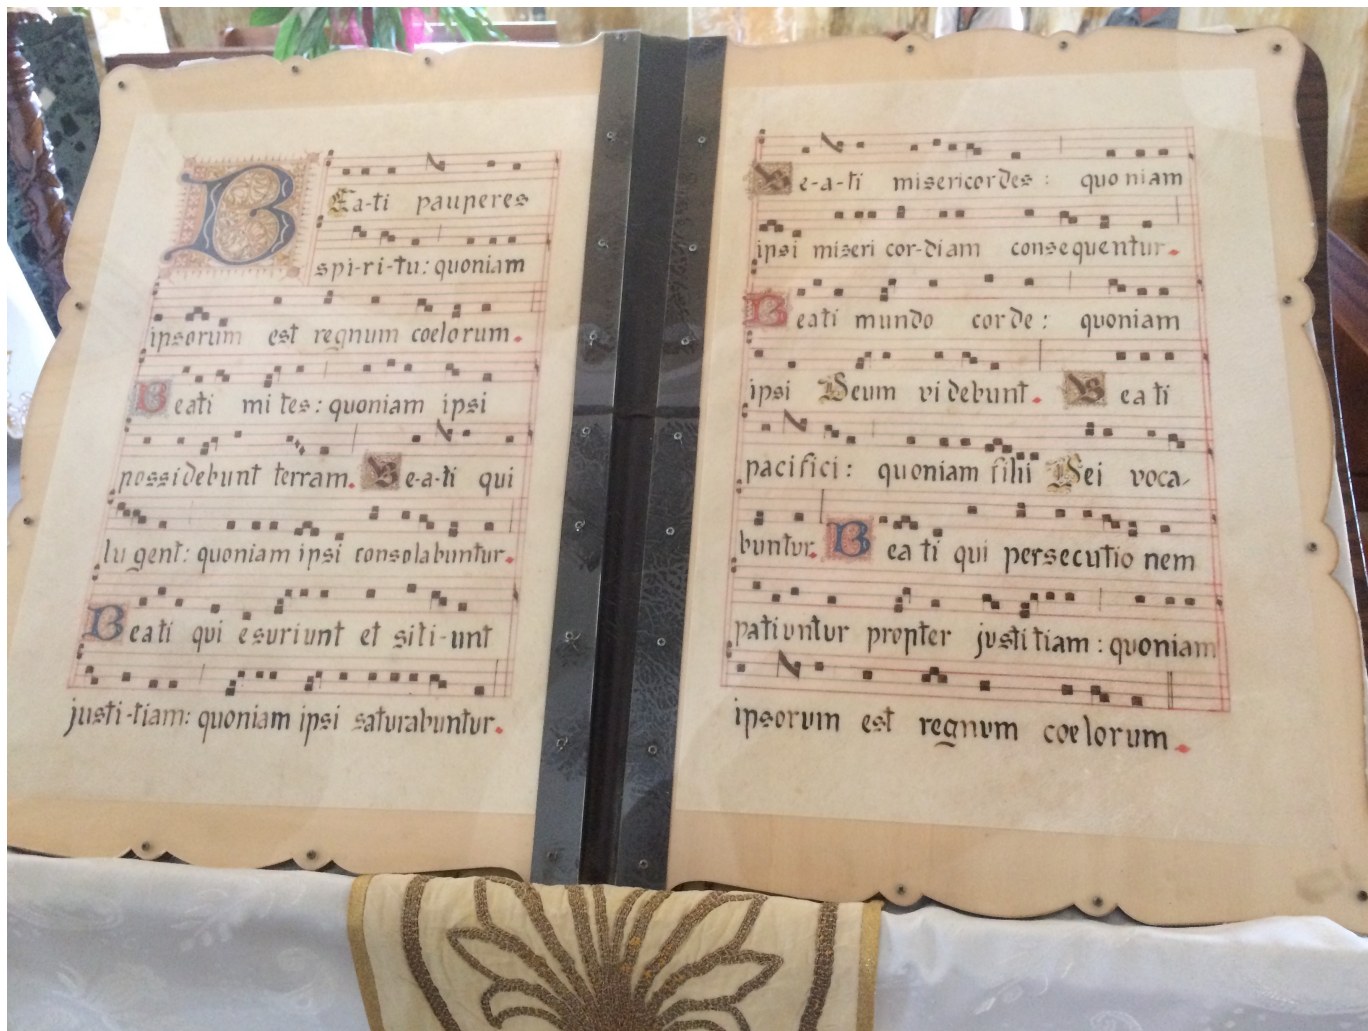 Bea-ti pauperes
spi-ri-tu: quoniam
ipsorum est regnum coelorum.
Beati mi tes: quoniam ipsi
possidebunt terram. Be-a-ti qui
lu gent: quoniam ipsi consolabuntur.
Beati qui esuriunt et siti-unt
justi-tiam: quoniam ipsi saturabuntur.
Be-a-ti misericordes: quo niam
ipsi miseri cor-diam consequentur.
Beati mundo cor de: quoniam
ipsi Deum vi debunt. Bea ti
pacifici: quoniam filii Dei voca-
buntur. Bea ti qui persecutio nem
patiuntur propter justi tiam: quoniam
ipsorum est regnum coelorum.